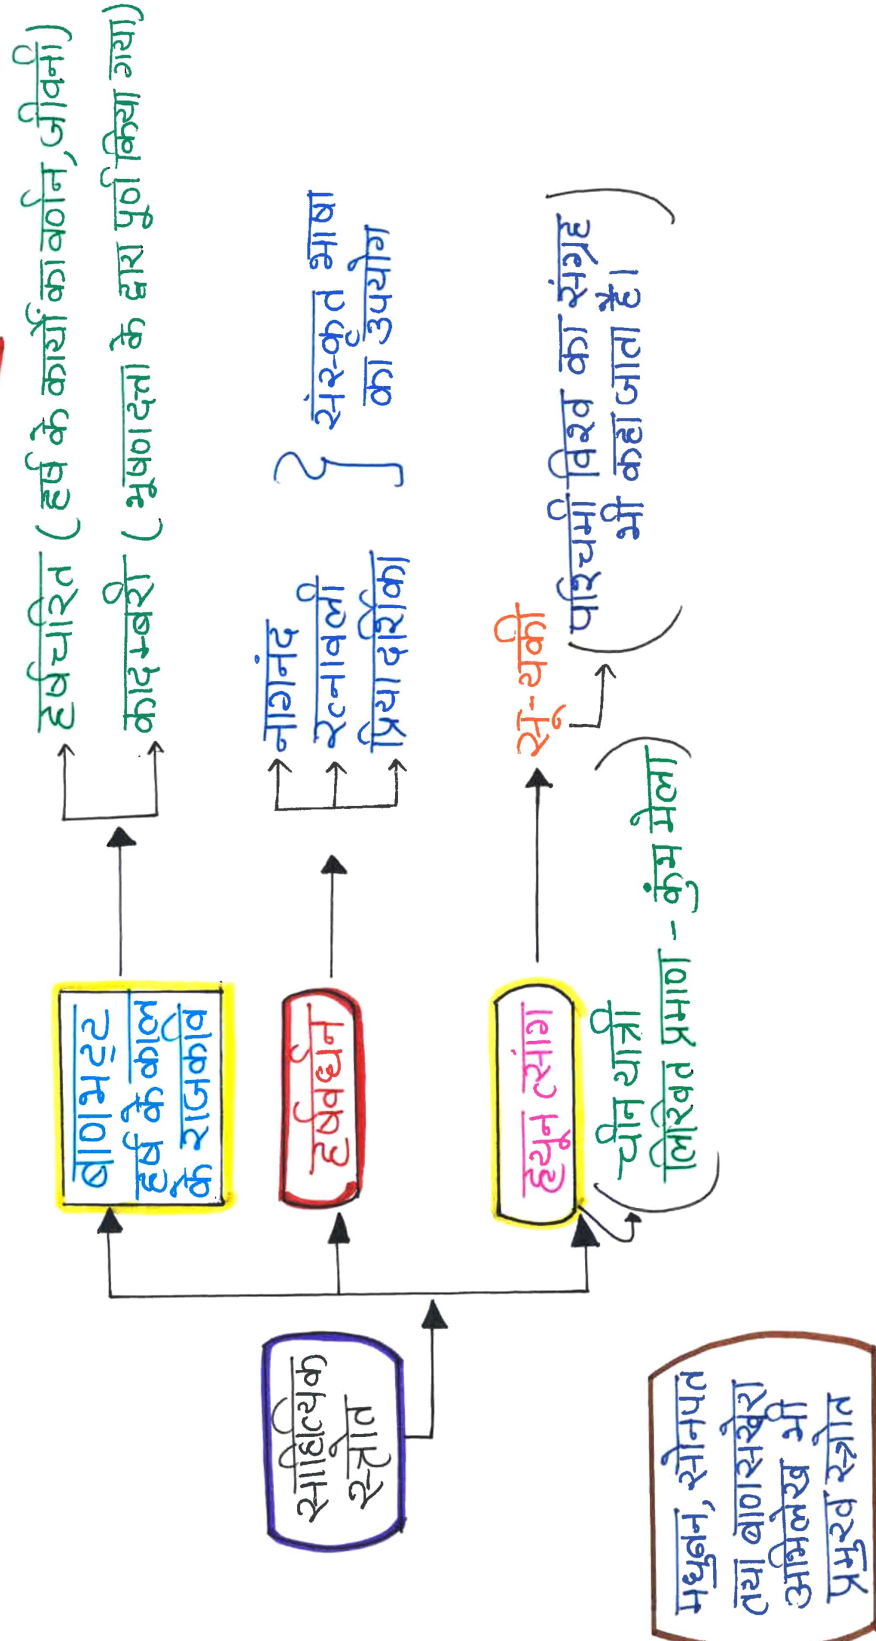 साहित्यिक
स्त्रोत
बाणभट्ट
हर्ष के काल
के राजकवि
हर्षचरित (हर्ष के कार्यों का वर्णन, जीवनी)
कादम्बरी (भूषणदत्ता के द्वारा पूर्ण किया गया)
हर्षवर्धन
नागनंद
रत्नावली
प्रिया दर्शिका
संस्कृत भाषा
का उपयोग
ह्यून त्सांग
(चीन यात्री
लिखित प्रमाण - कुंभ मेला)
सू-यकी
(पश्चिमी विश्व का संग्रह
भी कहा जाता है।)
मधुबन, सोनपत
तथा बाणसखेरा
अभिलेख भी
प्रमुख स्त्रोत